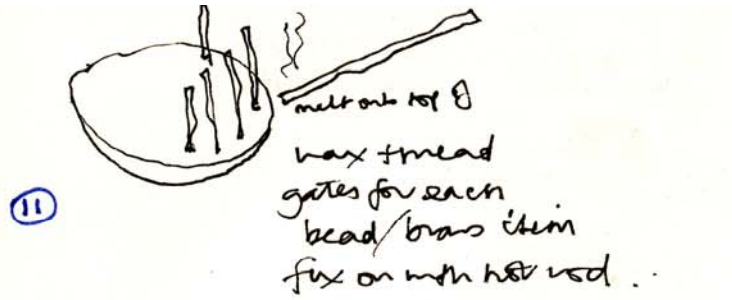 melt onto top of
wax thread
gates for each
bead/brass item
11
fix on with hot rod . .